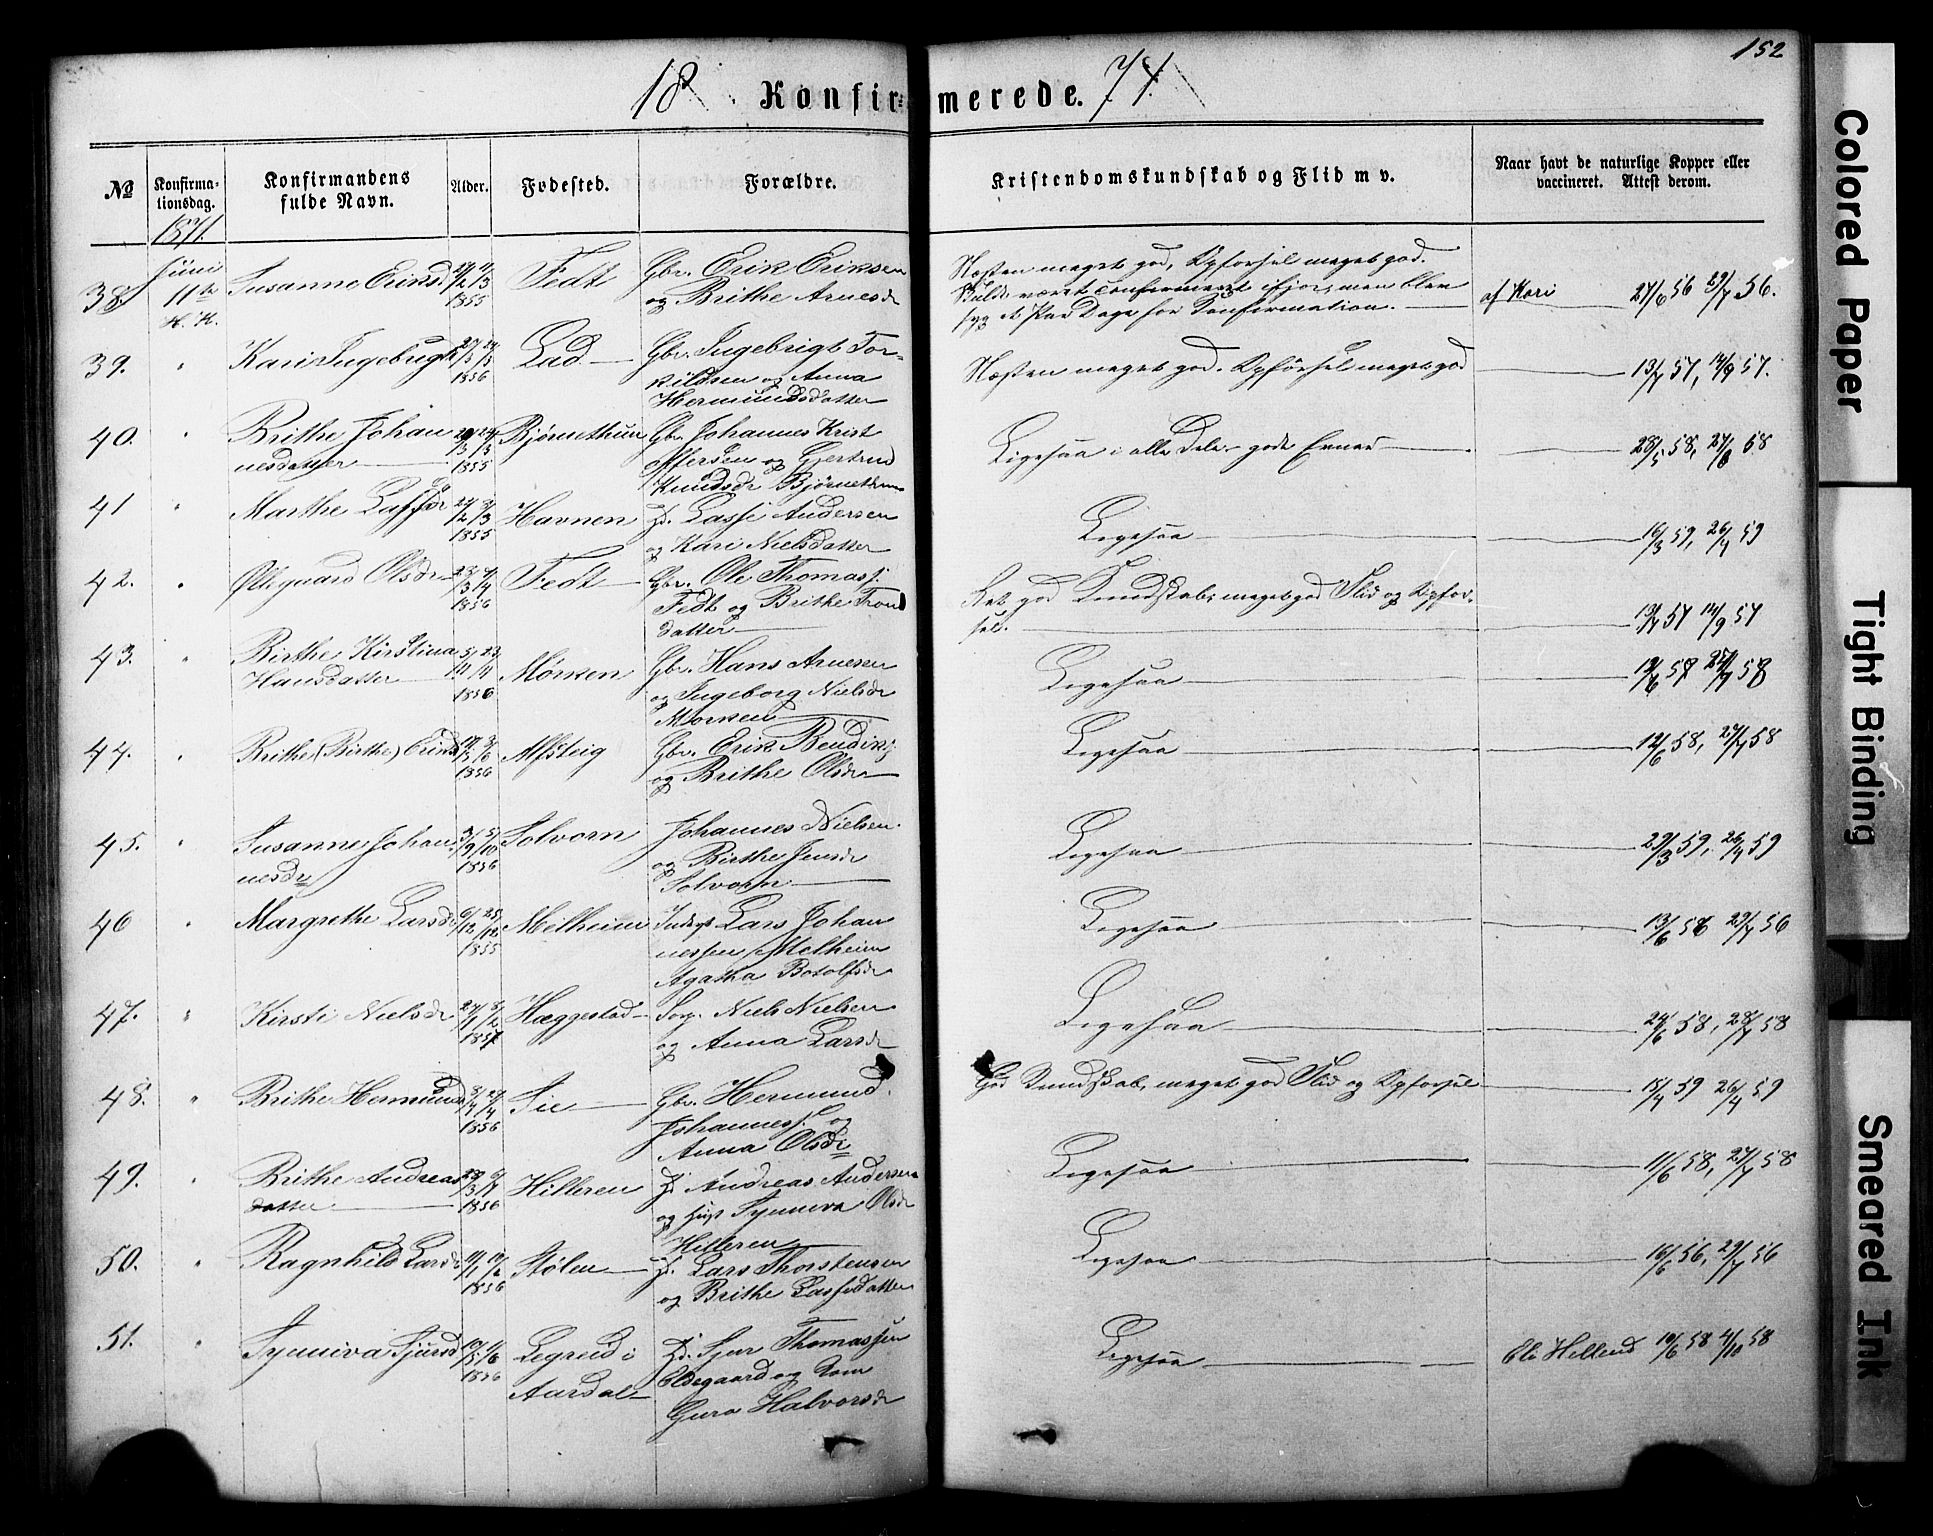 152
18 Konfirmerede. 71.
No
Konfirma-
tionsdag.
Konfirmandens
fulde Navn.
Alder.
Fødested.
Forældre.
Kristendomskundskab og Flid m v.
Naar havt de naturlige Kopper eller
vaccineret. Attest derom.
1871.
38. Juni 11te H. K. Susanne Eriksd 1855 Fedt Gbr. Erik Eriksen
og Brithe Arnesdr
Næsten meget god, Opførsel meget god.
Skulde været confirmeret ifjor, men blev
syg et Par Dage før Konfirmation.
af Kari 27/6 56 29/7 56.
39. " Kari Ingebrigtsd 1856 Lad Gbr. Ingebrigt Tor-
kildsen og Anna
Hermundsdatter
Næsten meget god. Opførsel meget god 13/7 57, 14/9 57.
40. " Brithe Johan
nesdatter 1855 Bjørnethun Gbr. Johannes Krist
offersen og Gjertrud
Knudsdr Bjørnethun
Ligesaa i alle Dele – gode Evner 28/5 58, 27/8 58
41 " Marthe Lassedr 27/2 3/3 1855 Havnen Hd. Lasse Andersen
og Kari Nielsdatter
Ligesaa 16/3 59, 26/4 59
42. " Ølegaard Olsdr 1856 Fedt Gbr. Ole Thomass.
Fedt og Brithe Trond
datter
Ret god Kundskab, meget god Flid og Opfør-
sel. 13/7 57 14/9 57
43. " Birthe Kirstina
Hansdatter 1856 Mørken Gbr. Hans Arnesen
og Ingeborg Nielsdr
Mørken
Ligesaa 12/6 58 27/7 58
44. " Brithe (Birthe) Eriksd 1856 Alfsteig Gbr. Erik Bendiks.
og Brithe Olsdr
Ligesaa 12/6 58, 27/7 58
45. " Susanne Johan
nesdr 3/9 5/10 1856 Solvorn Johannes Nielsen
og Birthe Jensdr
Solvorn
Ligesaa 23/3 59, 26/4 59
46 " Margrethe Larsd. 6/12 25/12 1855 Melheim Inderst Lars Johan
nessen Melheim
Agatha Botolfsdr
Ligesaa 13/6 56 29/7 56
47. " Kirsti Nielsdr 27/1 8/2 1857 Hæggestad Sorp. Niels Nielsen
og Anna Larsdr
Ligesaa 24/6 58, 28/7 58
48. " Brithe Hermunds 8/4 27/4 1856 Sie Gbr. Hermund
Johanness. og
Anna Olsdr
God Kundskab, meget god Flid og Opførsel 15/4 59 26/4 59
49. " Brithe Andreas
datter 1856 Hilleren Hd Andreas Andersen
og Hust Synneva Olsdr
Hilleren
Ligesaa 11/6 58, 27/7 58
50. " Ragnhild Larsd 1856 Stølen Hd. Lars Thorstensen
og Brithe Lassedatter
Ligesaa 16/6 56, 29/7 56
51. " Synneva Sjursd 1856 Legreid i
Aardal Hd. Sjur Thomassen
Oldegaard og Kone
Guro Halvorsdr
Ligesaa Eli Hellend 10/6 58 4/10 58
Colored Paper
Tight Binding
Smeared Ink